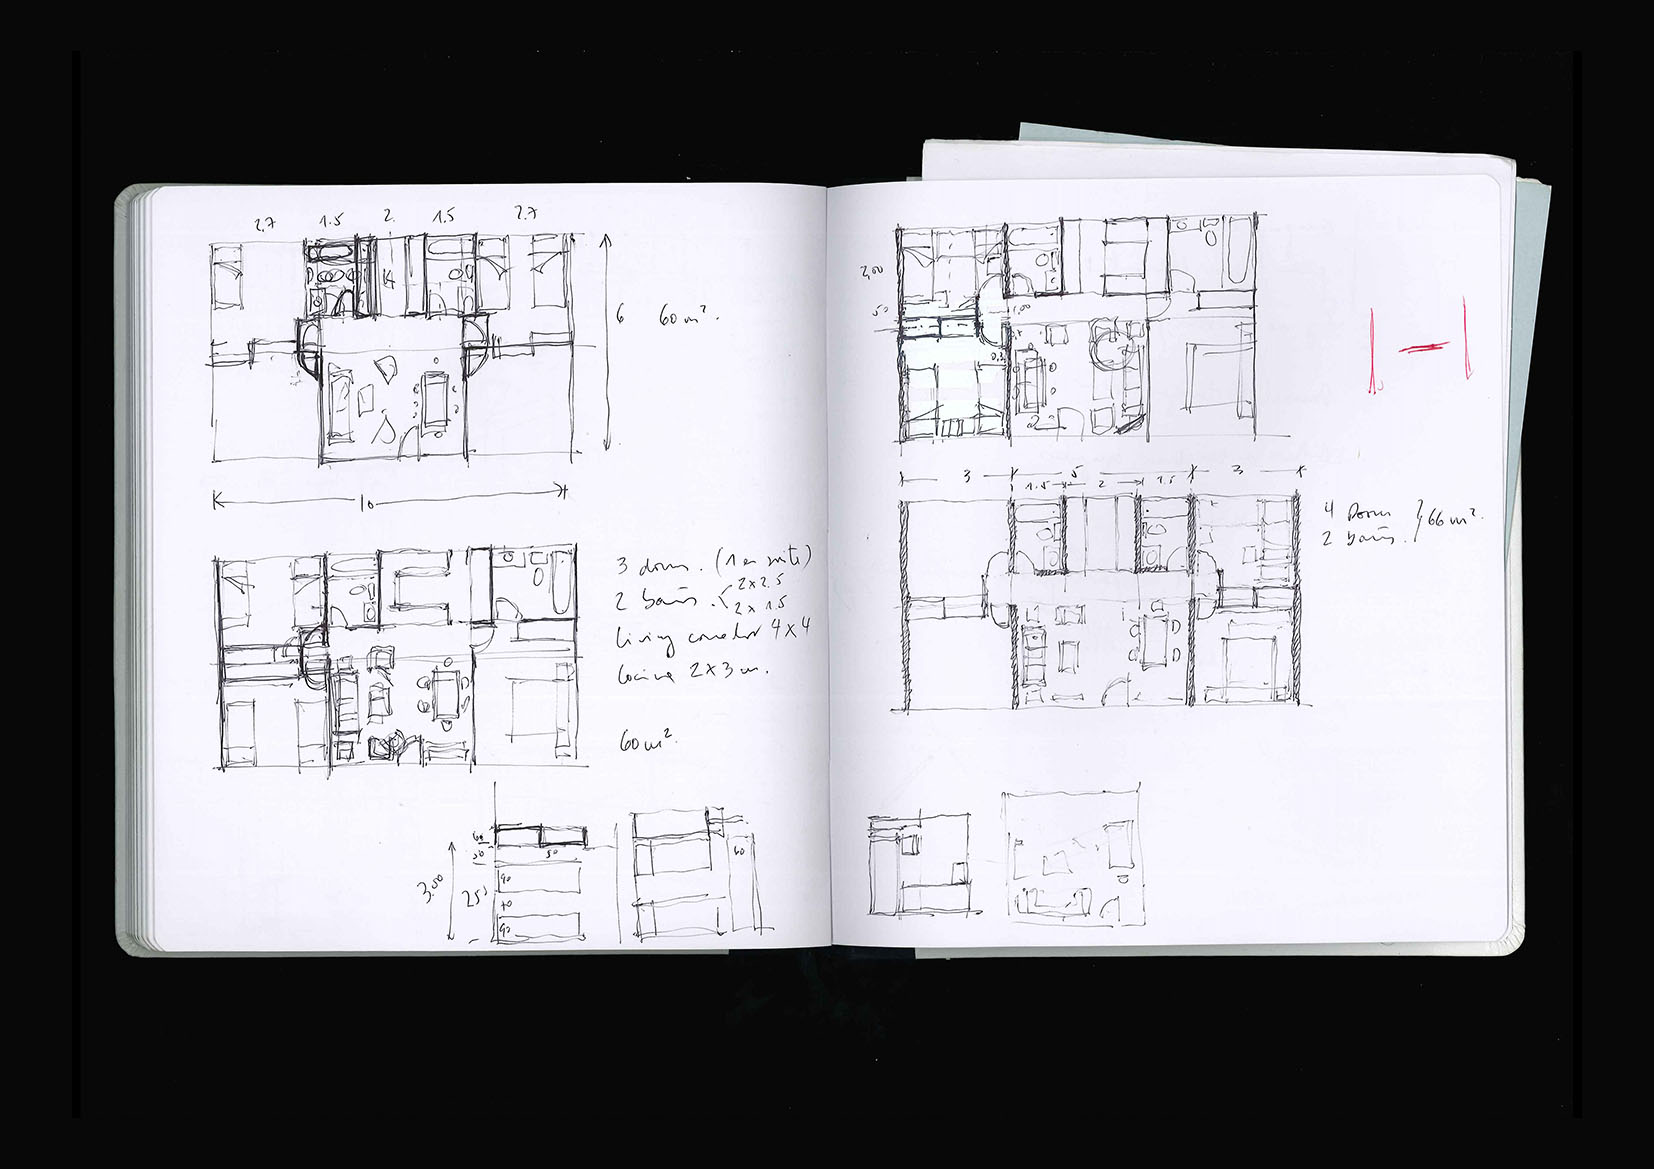 2.7 1.5 2. 1.5 2.7
6 60 m².
10
3 dorm. (1 en suite)
2 baños. 2 x 2.5
2 x 1.5
Living comedor 4 x 4
Cocina 2 x 3 m.
60 m².
60
50
3.00
250
90
70
90
60
2,00
50
1,00
3 5 3
1.5 2 1.5
4 Dorm
2 baños. } 66 m².